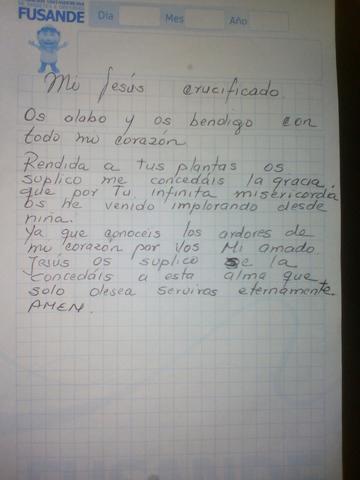 FUSANDE
Dia Mes Año
Mi Jesús crucificado.
Os alabo y os bendigo con
todo mi corazón
Rendida a tus plantas os
suplico me concedáis la gracia.
que por Tu infinita misericordia
os He venido implorando desde
niña.
Ya que conoceis los ardores de
mi corazón por Vos Mi amado
Jesús os suplico se la
concedáis a esta alma que
solo desea serviros eternamente
AMEN.